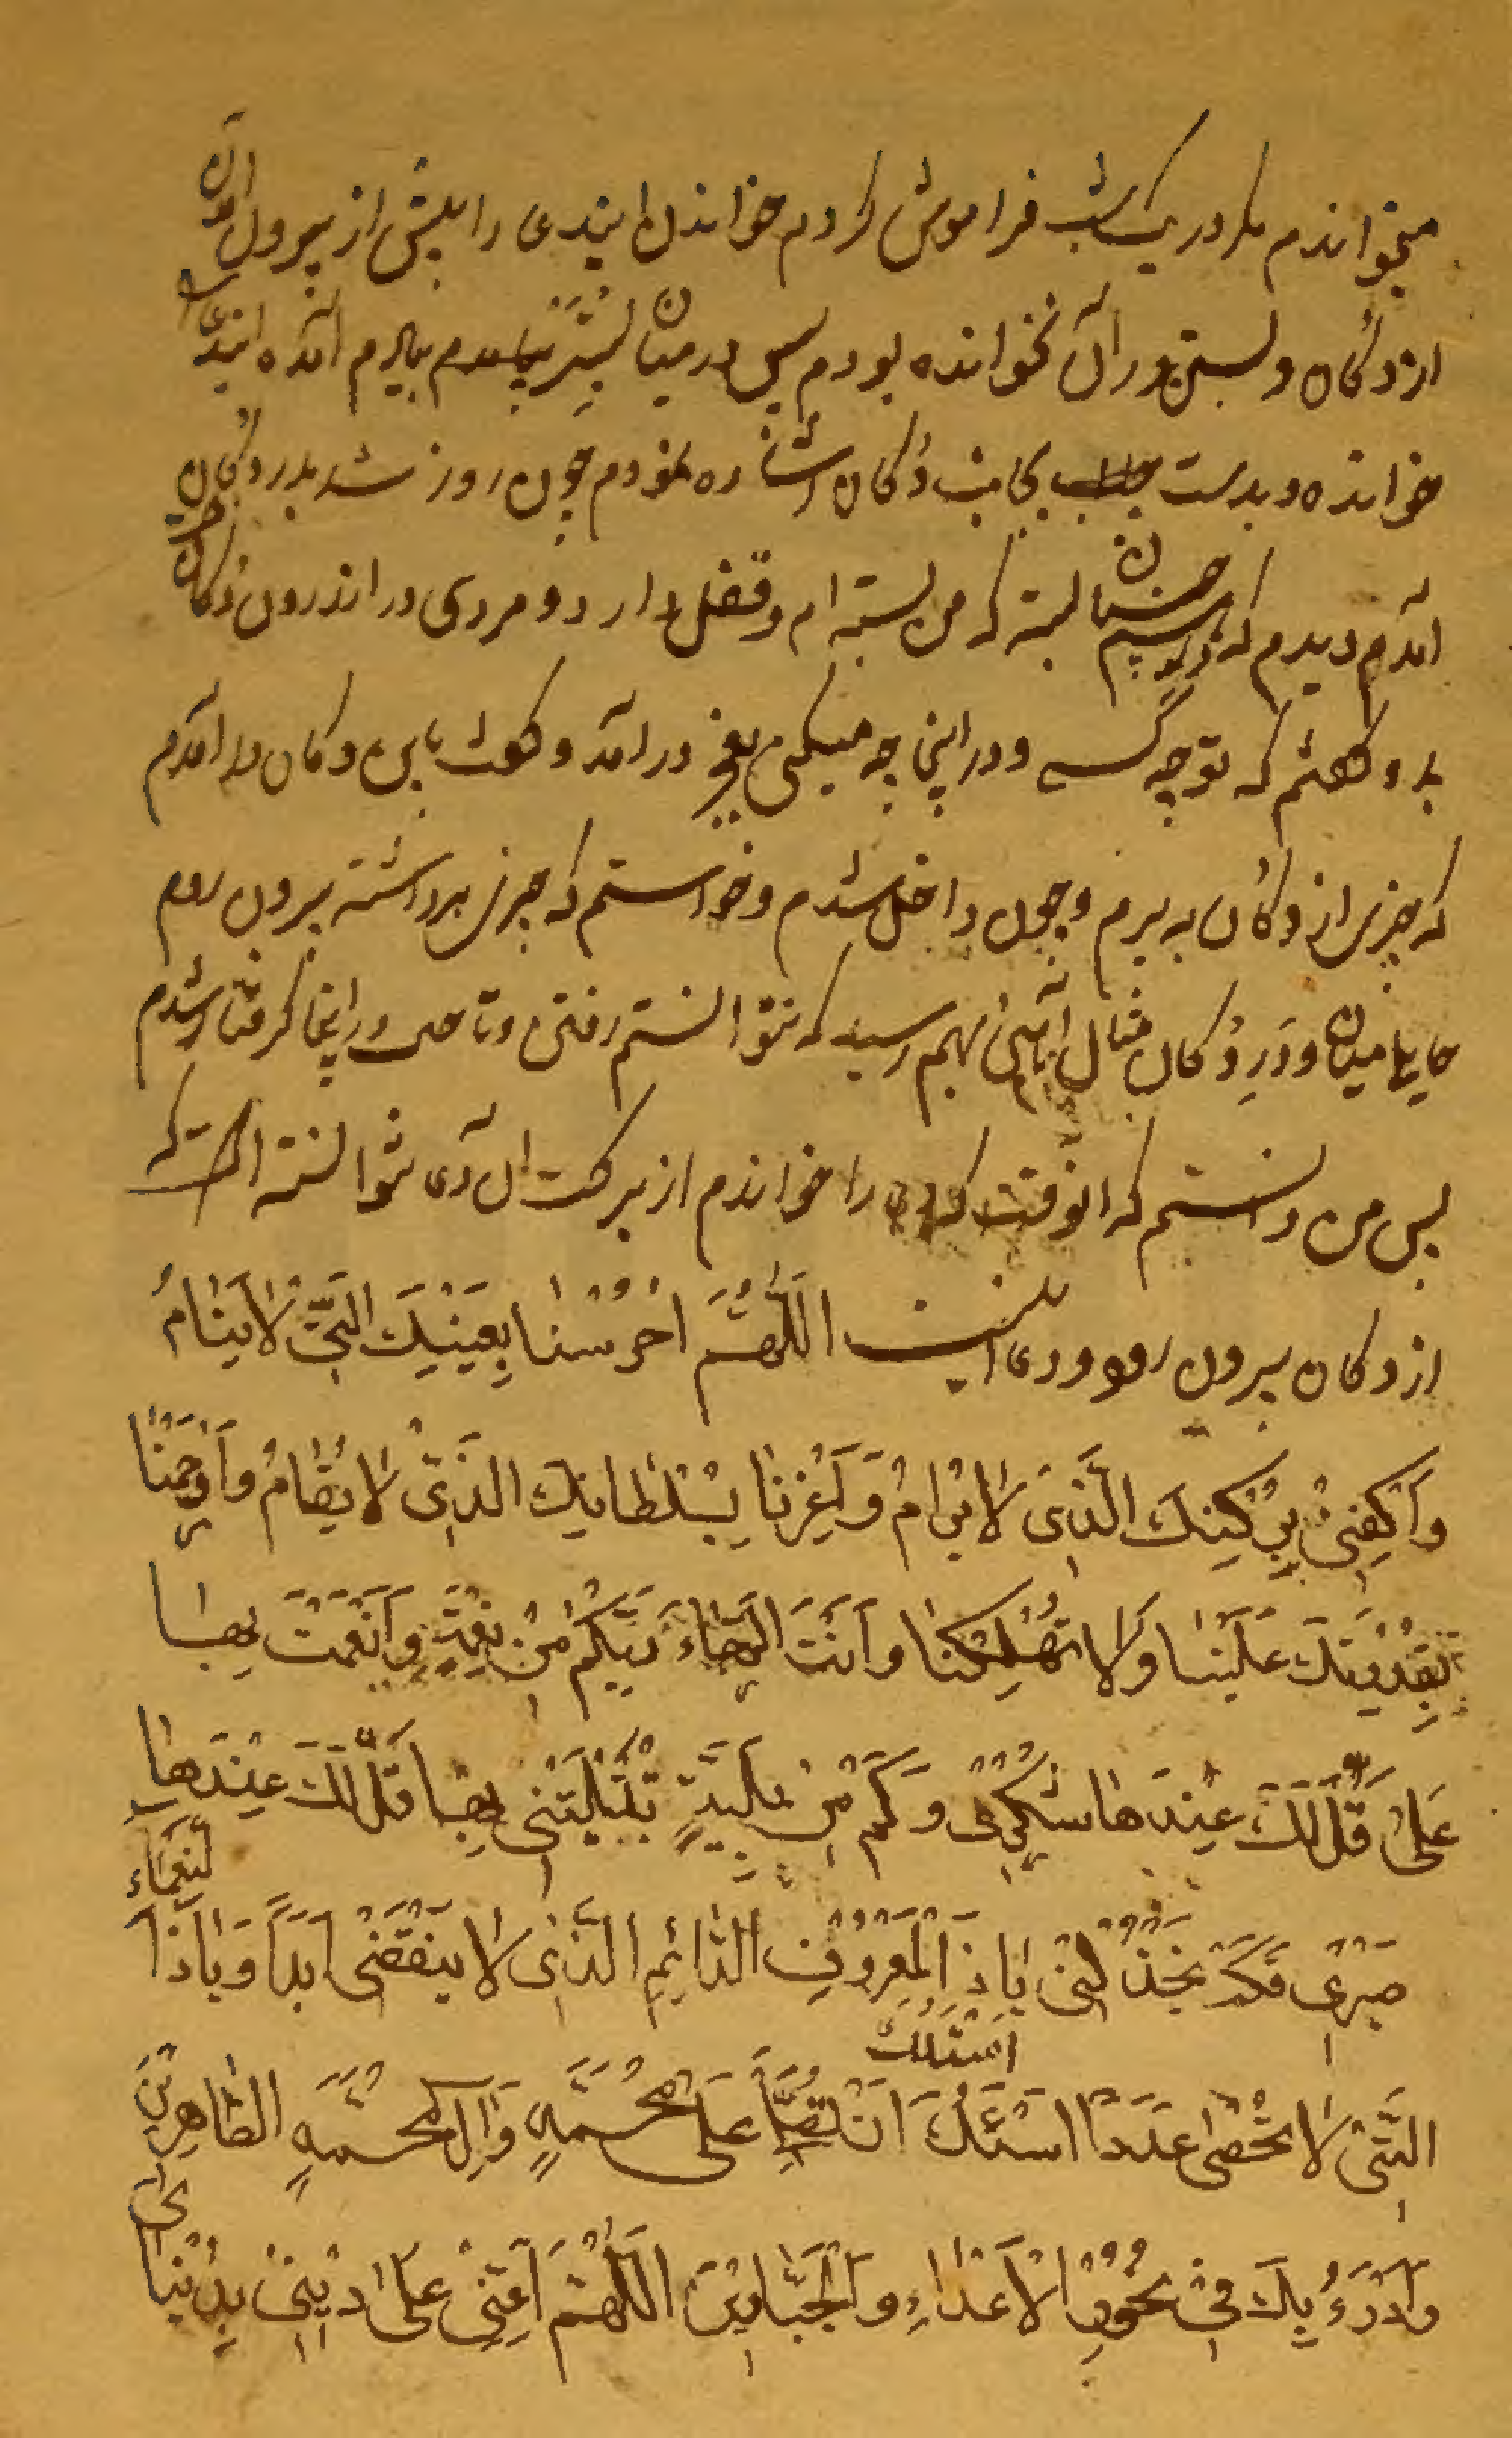 میخواندم مکر در یکشب فراموش کردم خواندن ایندعا را پیش از بیرون آمدن
از دکان و بستن در آن نخوانده بودم پس در میان بستر بیادم آمده ایندعا را
خوانده و بدست بجانب دکان اشاره نمودم چون روز شد بدر دکان
آمدم دیدم که در بسته که من بسته ام و قفل دارد و مردی در اندرون دکان
بدو گفتم که تو چه کسی و در اینجا چه میکنی در آمد و گفت باین دکان در آمدم
که چیزی از دکان به برم و چون داخل شدم و خواستم که چیزی برداشته بیرون روم
میان و در دکان مثال بهم رسید که نتوانستم رفتن و تا حال در اینجا گرفتار شدم
پس من دانستم که آنوقت که را خواندم از برکت آن دعا نتوانسته است که
از دکان بیرون رود و دعا اینست اَللّهُمَّ احْرُسْنا بِعَیْنِكَ الَّتی لا یَنامُ
وَاکْنِفْنی بِرُکْنِكَ الَّذی لا یُرامُ وَ اَعِزَّنا بِسُلْطانِكَ الَّذی لا یُضامُ وَارْحَمْنا
بِقُدْرَتِكَ عَلَیْنا وَلا تُهْلِکْنا وَاَنْتَ الرَّجاءُ رَبِّ کَمْ مِنْ نِعْمَةٍ وَاَنْعَمْتَ بِها
عَلَیَّ قَلَّ لَكَ عِنْدَها شُکْری وَکَمْ مِنْ بَلِیَّةٍ بْتَلَیْتَنی بِها قَلَّ لَكَ عِنْدَها
صَبْری فَلَمْ تَخْذُلْنی یا ذَا الْمَعْرُوفِ الدّائِمِ الَّذی لا یَنْقَضی اَبَدًا وَیا ذَا النَّعْماءِ
الَّتی لا تُحْصی عَدَدًا اَسْئَلُكَ اَسْئَلُكَ اَنْ تُصَلِّیَ عَلی مُحَمَّدٍ وَآلِ مُحَمَّدٍ الطّاهِرینَ
وَاَدْرَءُ بِكَ فی نُحُورِ الْاَعْداءِ وَالْجَبّارینَ اَللّهُمَّ اَعِنّی عَلی دینی بِدُنْیایَ